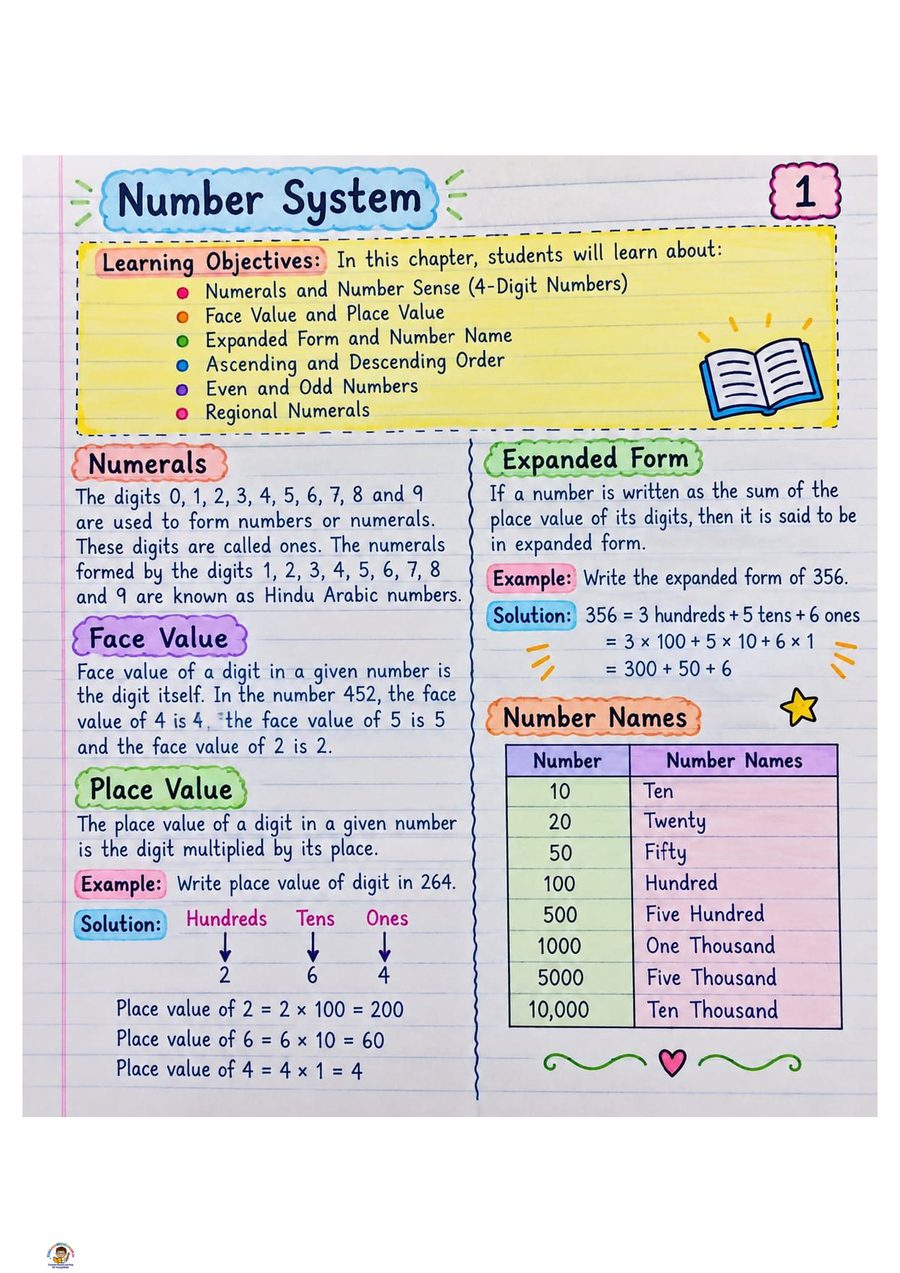 Number System
1
Learning Objectives: In this chapter, students will learn about:
Numerals and Number Sense (4-Digit Numbers)
Face Value and Place Value
Expanded Form and Number Name
Ascending and Descending Order
Even and Odd Numbers
Regional Numerals
Numerals
The digits 0, 1, 2, 3, 4, 5, 6, 7, 8 and 9
are used to form numbers or numerals.
These digits are called ones. The numerals
formed by the digits 1, 2, 3, 4, 5, 6, 7, 8
and 9 are known as Hindu Arabic numbers.
Face Value
Face value of a digit in a given number is
the digit itself. In the number 452, the face
value of 4 is 4, the face value of 5 is 5
and the face value of 2 is 2.
Place Value
The place value of a digit in a given number
is the digit multiplied by its place.
Example: Write place value of digit in 264.
Solution: Hundreds Tens Ones
2 6 4
Place value of 2 = 2 × 100 = 200
Place value of 6 = 6 × 10 = 60
Place value of 4 = 4 × 1 = 4
Expanded Form
If a number is written as the sum of the
place value of its digits, then it is said to be
in expanded form.
Example: Write the expanded form of 356.
Solution: 356 = 3 hundreds + 5 tens + 6 ones
= 3 × 100 + 5 × 10 + 6 × 1
= 300 + 50 + 6
Number Names
Number Number Names
10 Ten
20 Twenty
50 Fifty
100 Hundred
500 Five Hundred
1000 One Thousand
5000 Five Thousand
10,000 Ten Thousand